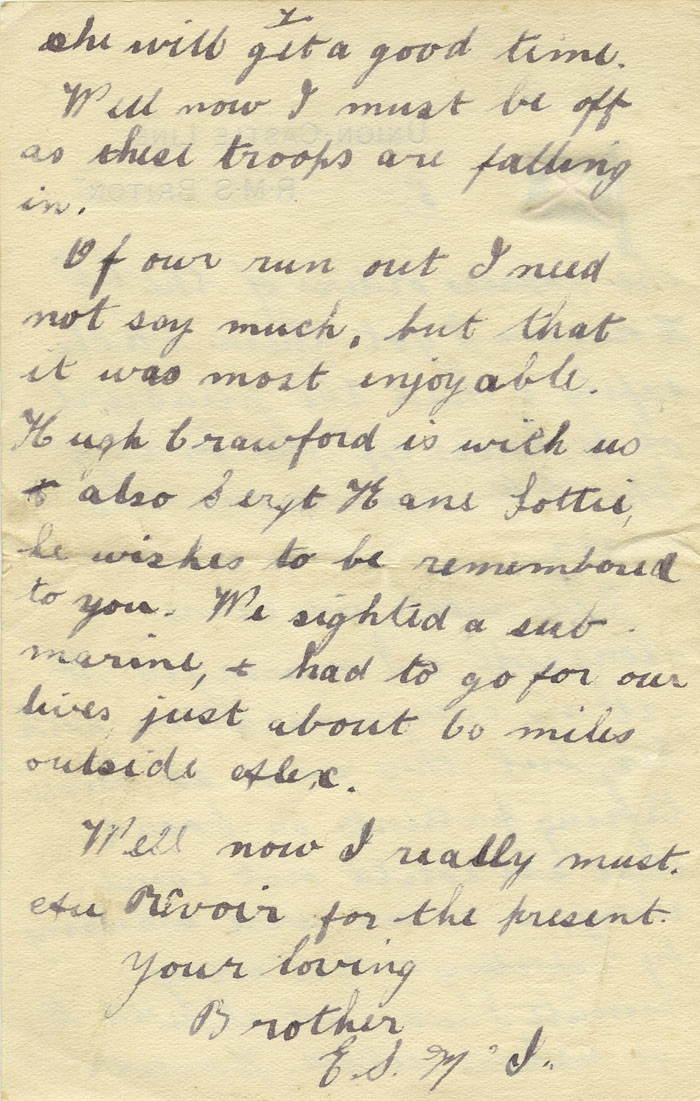 she will get a good time.
Well now I must be off
as these troops are falling
in.
Of our run out I need
not say much, but that
it was most enjoyable.
Hugh Crawford is with us
& also Sergt Hane Lottie,
he wishes to be remembered
to you. We sighted a sub
marine, & had to go for our
lives just about 60 miles
outside Alex.
Well now I really must.
Au Revoir for the present.
Your loving
Brother
E.S. McI.
UNION-CASTLE LINE
R.M.S. BRITON